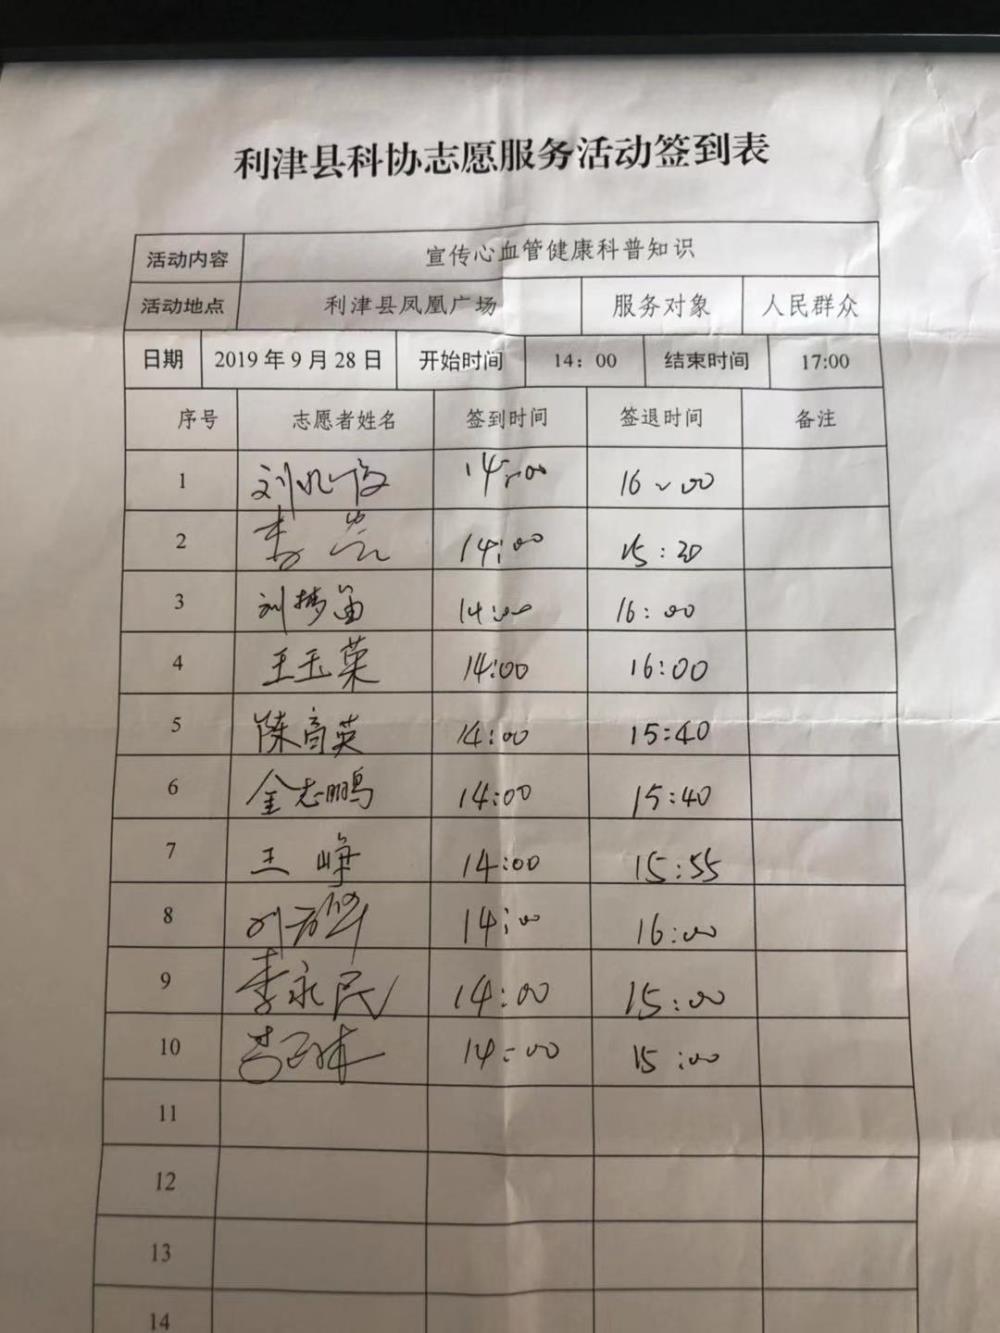 利津县科协志愿服务活动签到表
活动内容 宣传心血管健康科普知识
活动地点 利津县凤凰广场 服务对象 人民群众
日期 2019年9月28日 开始时间 14：00 结束时间 17:00
序号 志愿者姓名 签到时间 签退时间 备注
1 刘 14:00 16:00
2 李 14:00 15:30
3 刘梦笛 14:00 16:00
4 王玉荣 14:00 16:00
5 陈育英 14:00 15:40
6 金志鹏 14:00 15:40
7 王峥 14:00 15:55
8 刘 14:00 16:00
9 李永民 14:00 15:00
10 14:00 15:00
11
12
13
14